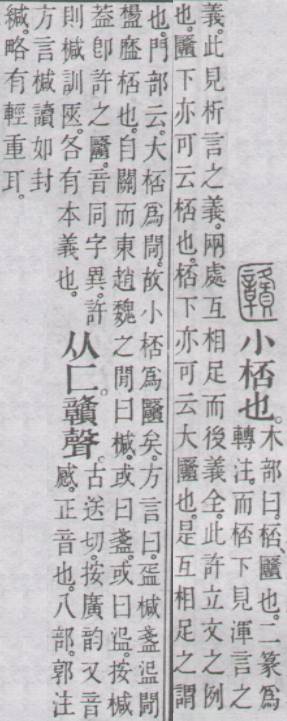 小桮也。
木部曰。桮、𠥺也。二篆爲
轉注。而桮下見渾言之
義。此見析言之義。兩處互相足而後義全。此許立文之例
也。𠥺下亦可云桮也。桮下亦可云大𠥺也。是互相足之謂
也。門部云。大桮爲閜。故小桮爲𠥺矣。方言曰。㿿椷盞𥁐閜
𥂓䀅桮也。自關而東趙魏之閒曰椷。或曰盞。或曰𥁐。按椷
葢卽許之𠥺。音同字異。許
則椷訓匧。各有本義也。
从匚贛聲。
古送切。按廣韵又音
感。正音也。八部。郭注
方言椷讀如封
緘。略有輕重耳。